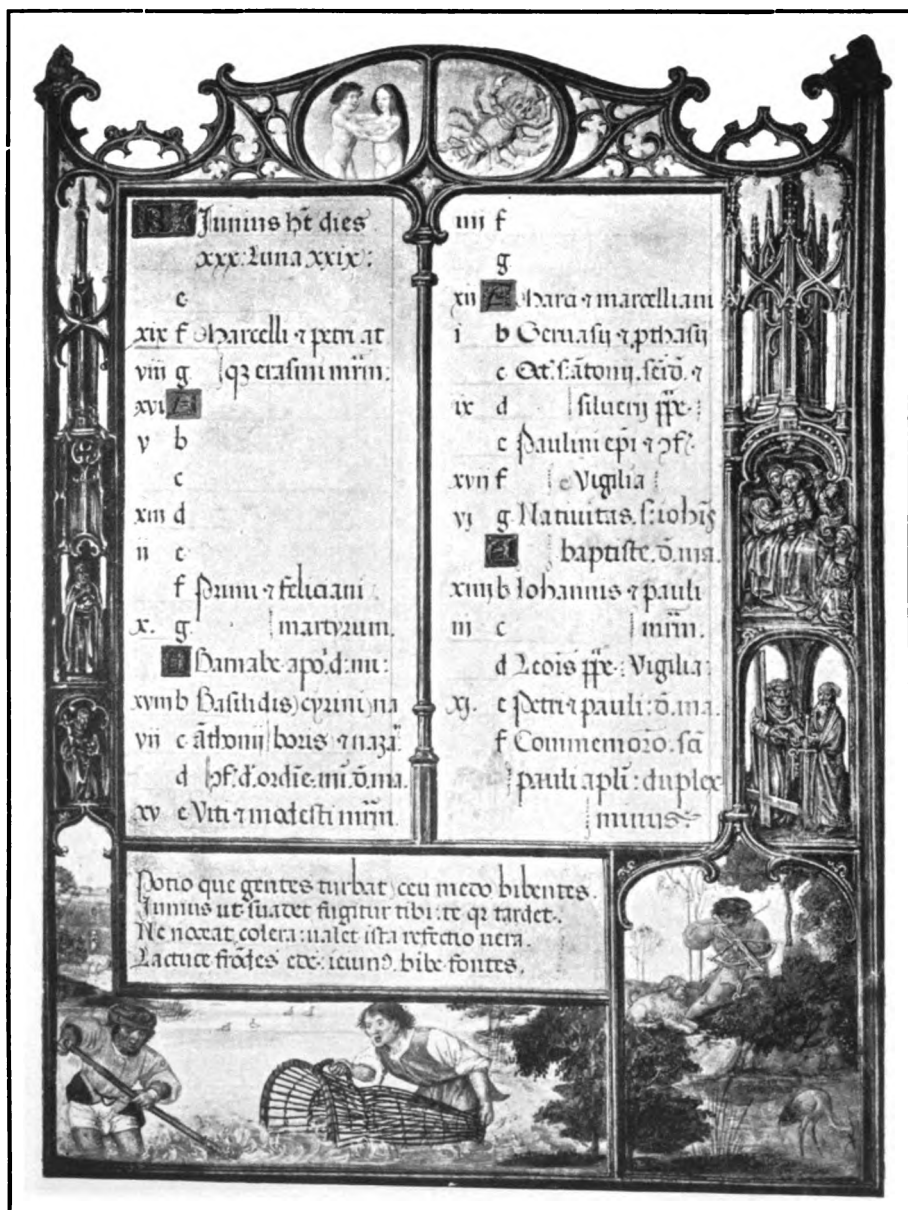 KL Junius ht dies
xxx: Luna xxix:
e
xix f Marcelli ⁊ petri at
viii g qꝫ erasmi mrm.
xvi A
v b
c
xiii d
ii e
f Primi ⁊ feliciani
x. g martyrum.
A Barnabe apo. d: mi:
xviii b Basilidis) cyrini) na
vii c āthonij boris ⁊ nazā
d ꝯf. d. ordīe. mi. d. ma.
xv e Viti ⁊ modesti mrm.
iiii f
g
xii A Marci ⁊ marcelliani
i b Geruasij ⁊ ꝓthasij
c Oct. s. ātonij.
ix d siluerij ppe.
e Paulini epi ⁊ ꝯf.
xvii f Vigilia
vi g Natiuitas. s. iohis
A baptiste. d. ma.
xiiii b Iohannis ⁊ pauli
iii c mrm.
d Leois ppe: Vigilia:
xi. e Petri ⁊ pauli: d. ma.
f Commemoro. sci
pauli apli: duplex
minus
Potio que gentes turbat) ceu medo bibentes.
Junius ut suadet fugitur tibi: te qꝫ tardet.
Ne noceat colera: ualet ista refectio uera.
Lactuce frōdes ede: ieiunꝰ. bibe fontes.